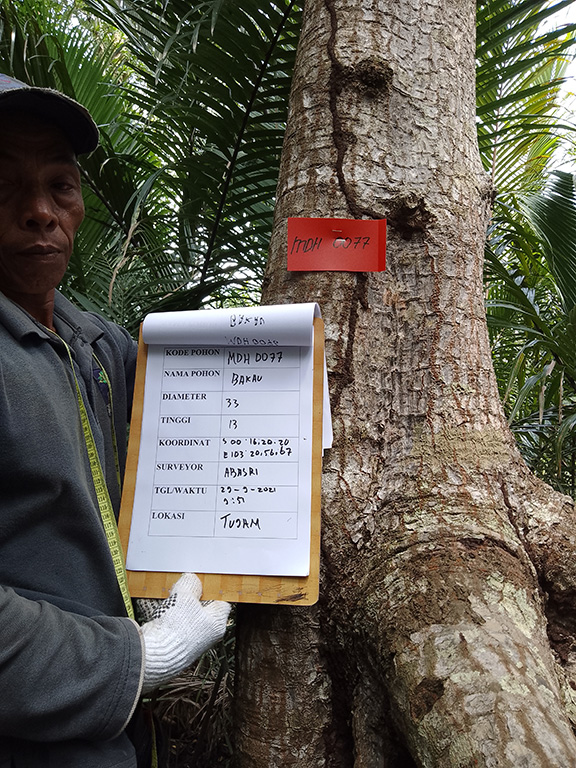 MDH 0077
KODE POHON MDH 0077
NAMA POHON BAKAU
DIAMETER 33
TINGGI 13
KOORDINAT S 00.16.20.20
E 103 20.56.67
SURVEYOR ABASRI
TGL/WAKTU 29-9-2021
9:51
LOKASI